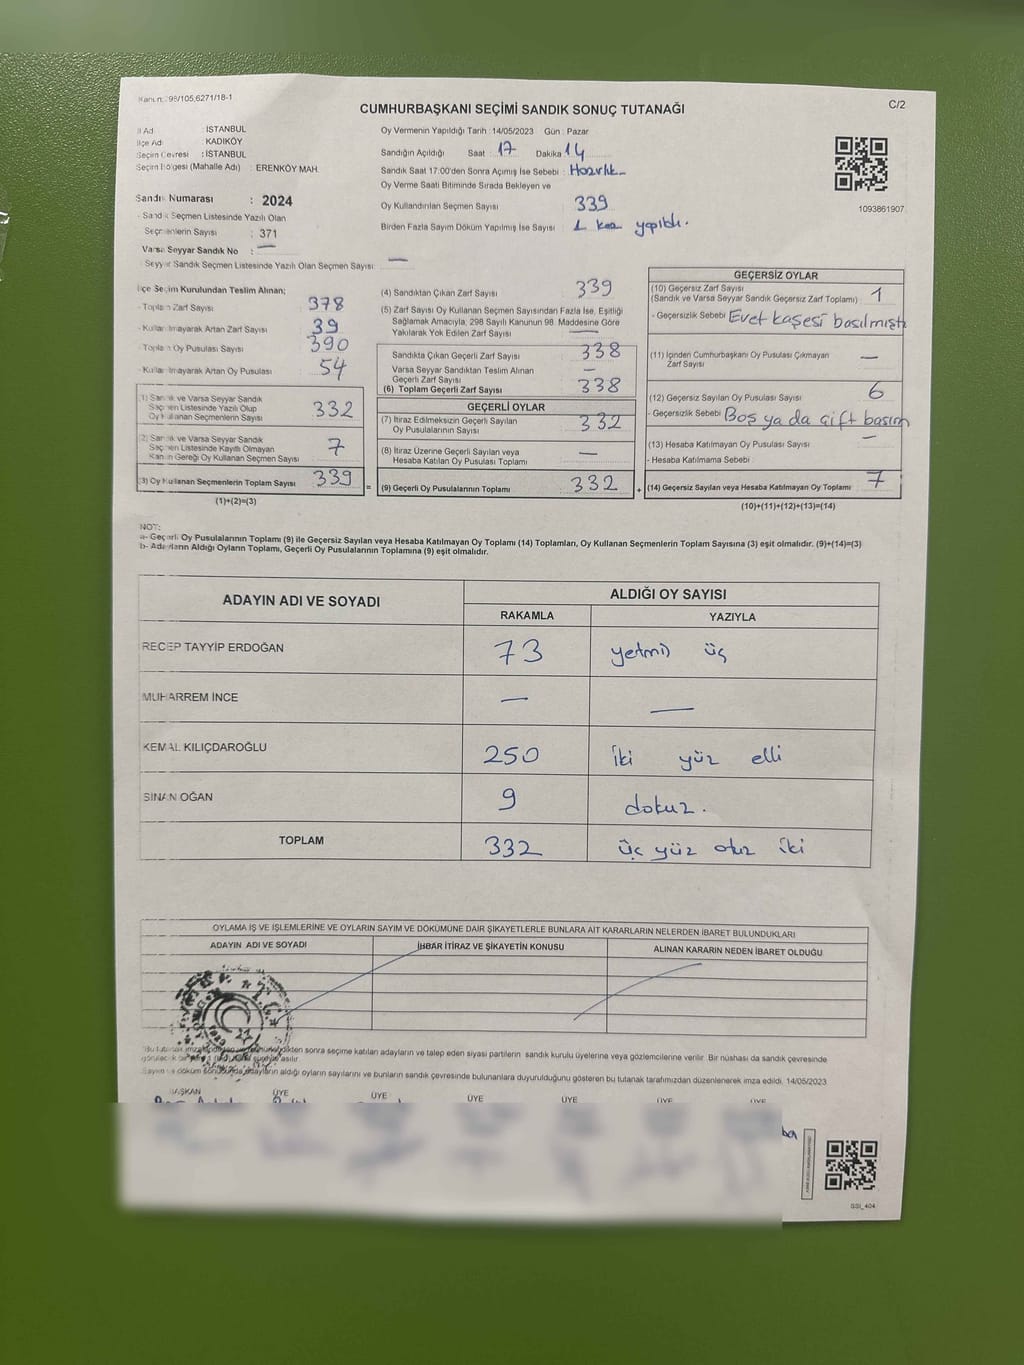 CUMHURBAŞKANI SEÇİMİ SANDIK SONUÇ TUTANAĞI
C/2
İl Adı : İSTANBUL
İlçe Adı : KADIKÖY
Seçim Çevresi : İSTANBUL
Seçim Bölgesi (Mahalle Adı) : ERENKÖY MAH.
Sandık Numarası : 2024
- Sandık Seçmen Listesinde Yazılı Olan
Seçmenlerin Sayısı : 371
Varsa Seyyar Sandık No : —
Seyyar Sandık Seçmen Listesinde Yazılı Olan Seçmen Sayısı: —
Oy Vermenin Yapıldığı Tarih : 14/05/2023 Gün : Pazar
Sandığın Açıldığı Saat : 17 Dakika : 14
Sandık Saat 17:00'den Sonra Açımış İse Sebebi : Hazırlık
Oy Verme Saati Bitiminde Sırada Bekleyen ve
Oy Kullandırılan Seçmen Sayısı 339
Birden Fazla Sayım Döküm Yapılmış İse Sayısı : 1 kez yapıldı.
1093861907
İlçe Seçim Kurulundan Teslim Alınan;
- Toplam Zarf Sayısı 378
- Kullanılmayarak Artan Zarf Sayısı 39
- Toplam Oy Pusulası Sayısı 390
- Kullanılmayarak Artan Oy Pusulası 54
(1) Sandık ve Varsa Seyyar Sandık
Seçmen Listesinde Yazılı Olup
Oy Kullanan Seçmenlerin Sayısı 332
(2) Sandık ve Varsa Seyyar Sandık
Seçmen Listesinde Kayıtlı Olmayan
Kanun Gereği Oy Kullanan Seçmen Sayısı 7
(3) Oy Kullanan Seçmenlerin Toplam Sayısı 339
(1)+(2)=(3)
(4) Sandıktan Çıkan Zarf Sayısı 339
(5) Zarf Sayısı Oy Kullanan Seçmen Sayısından Fazla İse, Eşitliği
Sağlamak Amacıyla, 298 Sayılı Kanunun 98. Maddesine Göre
Yakılarak Yok Edilen Zarf Sayısı —
Sandıkta Çıkan Geçerli Zarf Sayısı 338
Varsa Seyyar Sandıktan Teslim Alınan
Geçerli Zarf Sayısı —
(6) Toplam Geçerli Zarf Sayısı 338
GEÇERLİ OYLAR
(7) İtiraz Edilmeksizin Geçerli Sayılan
Oy Pusulalarının Sayısı 332
(8) İtiraz Üzerine Geçerli Sayılan veya
Hesaba Katılan Oy Pusulası Toplamı —
= (9) Geçerli Oy Pusulalarının Toplamı 332
GEÇERSİZ OYLAR
(10) Geçersiz Zarf Sayısı
(Sandık ve Varsa Seyyar Sandık Geçersiz Zarf Toplamı) 1
- Geçersizlik Sebebi : Evet kaşesi basılmıştı
(11) İçinden Cumhurbaşkanı Oy Pusulası Çıkmayan
Zarf Sayısı —
(12) Geçersiz Sayılan Oy Pusulası Sayısı 6
- Geçersizlik Sebebi : Boş ya da çift basım
(13) Hesaba Katılmayan Oy Pusulası Sayısı —
- Hesaba Katılmama Sebebi :
+ (14) Geçersiz Sayılan veya Hesaba Katılmayan Oy Toplamı 7
(10)+(11)+(12)+(13)=(14)
NOT:
a- Geçerli Oy Pusulalarının Toplamı (9) ile Geçersiz Sayılan veya Hesaba Katılmayan Oy Toplamı (14) Toplamları, Oy Kullanan Seçmenlerin Toplam Sayısına (3) eşit olmalıdır. (9)+(14)=(3)
b- Adayların Aldığı Oyların Toplamı, Geçerli Oy Pusulalarının Toplamına (9) eşit olmalıdır.
ADAYIN ADI VE SOYADI
ALDIĞI OY SAYISI
RAKAMLA YAZIYLA
RECEP TAYYİP ERDOĞAN 73 yetmiş üç
MUHARREM İNCE — —
KEMAL KILIÇDAROĞLU 250 iki yüz elli
SİNAN OĞAN 9 dokuz.
TOPLAM 332 üç yüz otuz iki
OYLAMA İŞ VE İŞLEMLERİNE VE OYLARIN SAYIM VE DÖKÜMÜNE DAİR ŞİKAYETLERLE BUNLARA AİT KARARLARIN NELERDEN İBARET BULUNDUKLARI
ADAYIN ADI VE SOYADI İHBAR İTİRAZ VE ŞİKAYETİN KONUSU ALINAN KARARIN NEDEN İBARET OLDUĞU
T.C.
sonra seçime katılan adayların ve talep eden siyasi partilerin sandık kurulu üyelerine veya gözlemcilerine verilir. Bir nüshası da sandık çevresinde
adayların aldığı oyların sayılarını ve bunların sandık çevresinde bulunanlara duyurulduğunu gösteren bu tutanak tarafımızdan düzenlenerek imza edildi. 14/05/2023
BAŞKAN ÜYE ÜYE ÜYE ÜYE ÜYE ÜYE